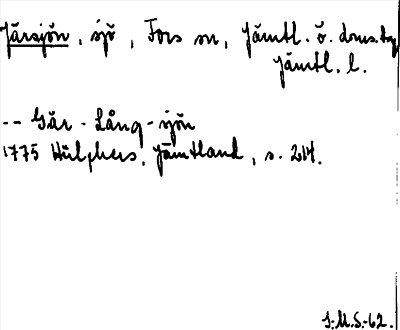 Järsjön, sjö, Fors sn, Jämtl. ö. doms.
Jämtl. l.
-- Gär - Lång - sjön
1775 Hülphers, Jämtland, s. 214.
J.M.S.-62.